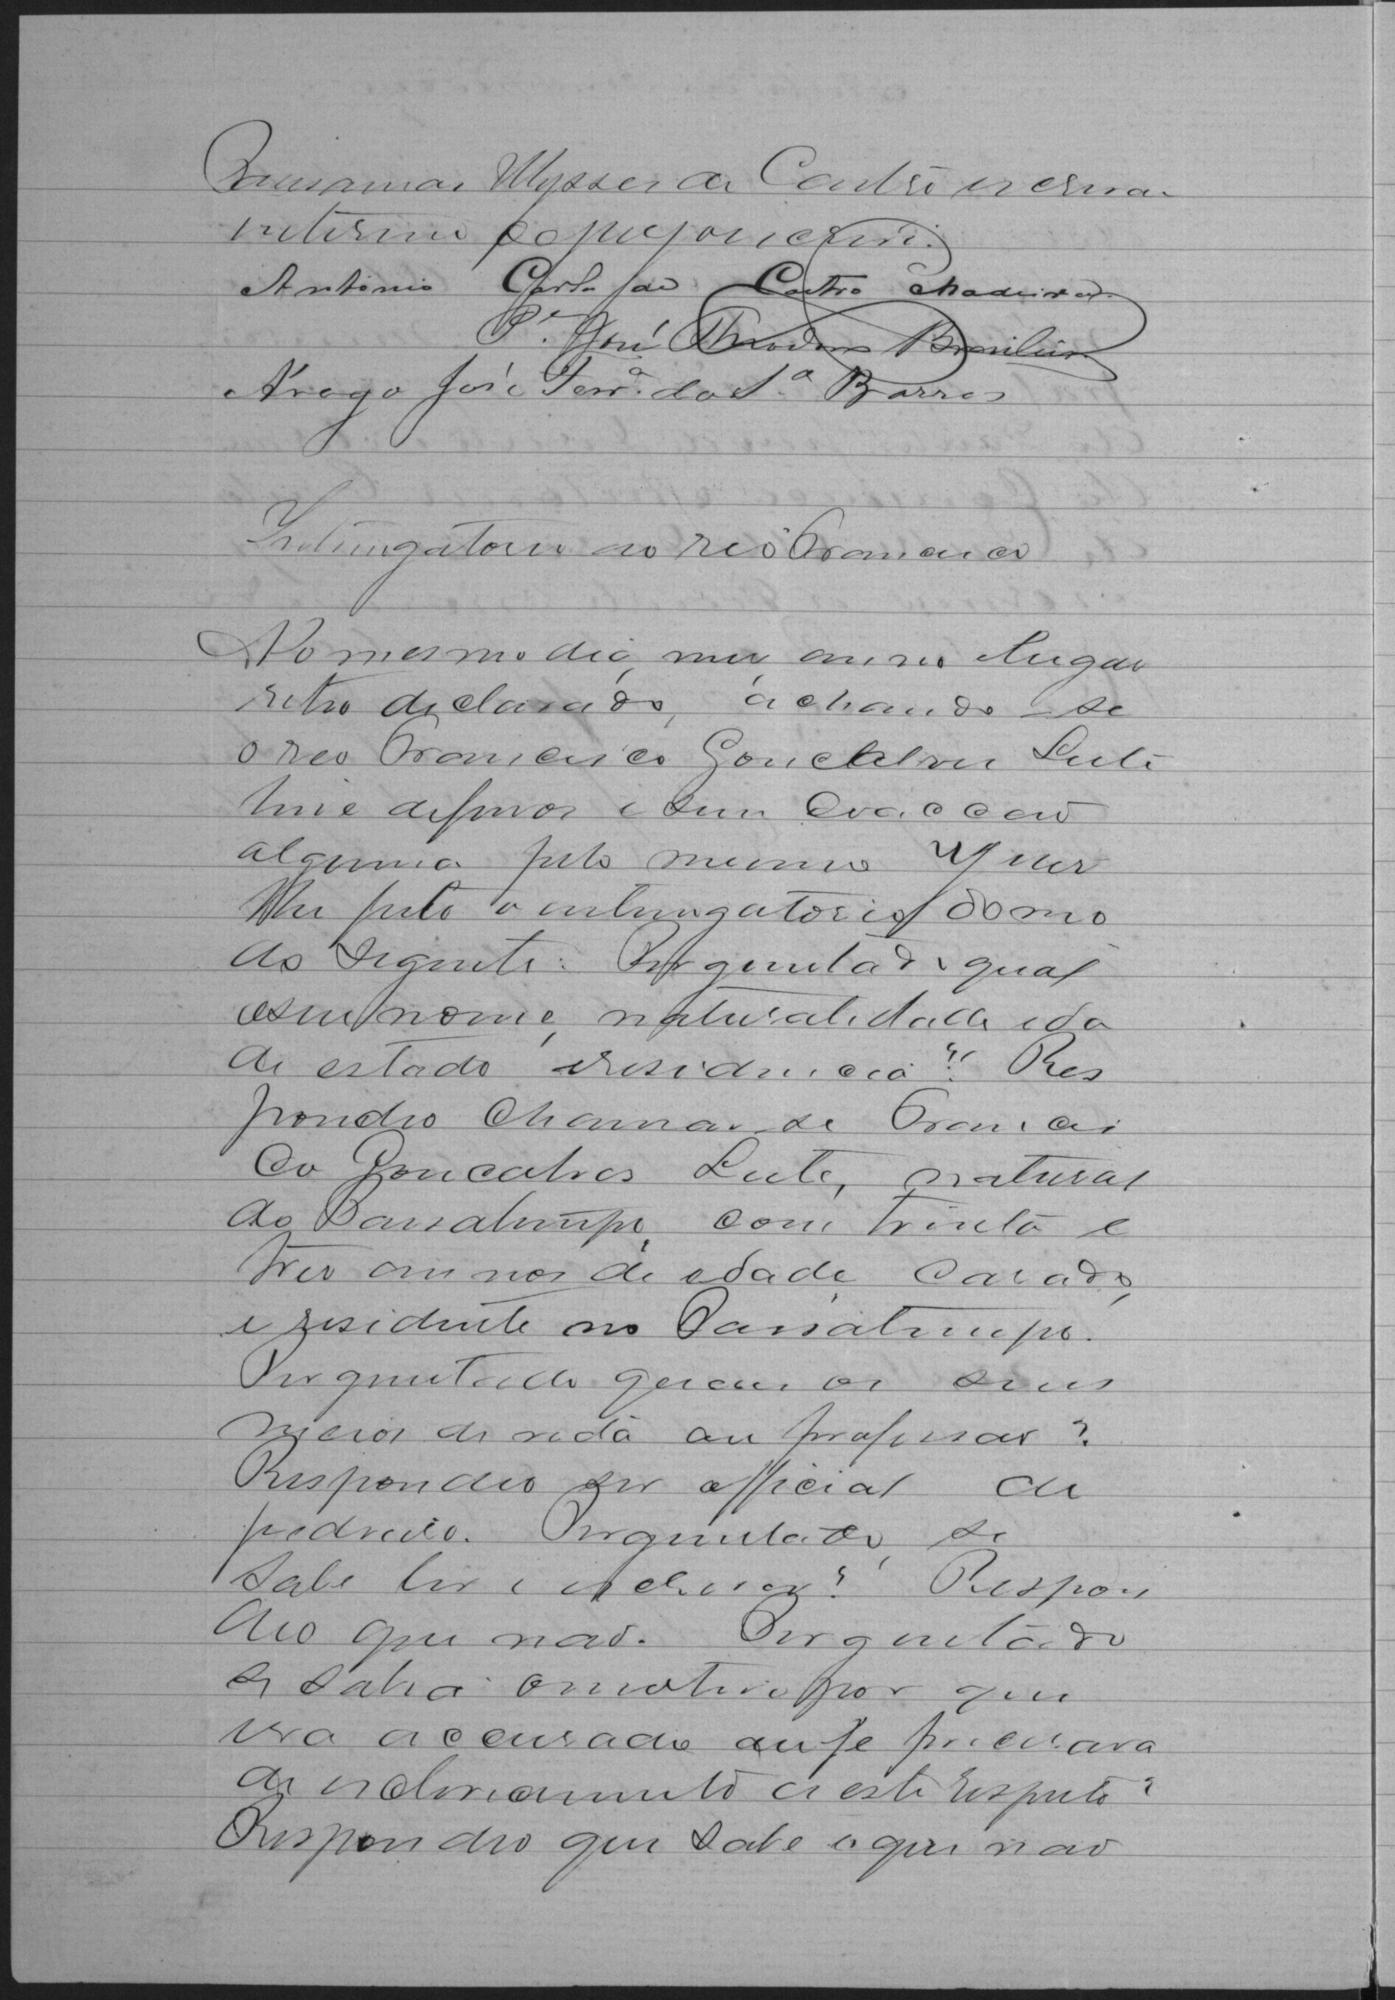 Ulysses de Castro escrivão
interino
Antonio Carlos de Castro Madeira
P.e José Theodoro Brasiliense
A rogo José Ferr.a da S.a Barros
Interrogatorio ao reo Francisco
No mesmo dia, mez, anno e lugar
retro declarado, achando-se
o reo Francisco Gonclalves Leite
livre de ferros e sem coaccão
alguma pelo mesmo Juiz
lhe feito o interrogatorio do mo
do seguinte: Perguntado qual
o seu nome, naturalidade ida
de estado e residencia? Res
pondeo chamar-se Francis
co Goncalves Leite, natural
do Passatempo, com trinta e
tres annos de edade, casado,
e residente no Passatempo.
Perguntado quaes os seus
meios de vida ou profissao?
Respondeo ser official de
pedreiro. Perguntado, se
sabe ler e escrever? Respon
deo que nao. Perguntado
se sabia o motivo por que
era accusado ou se precisava
de esclarecimento a este respeito?
Respondeo que sabe e que nao